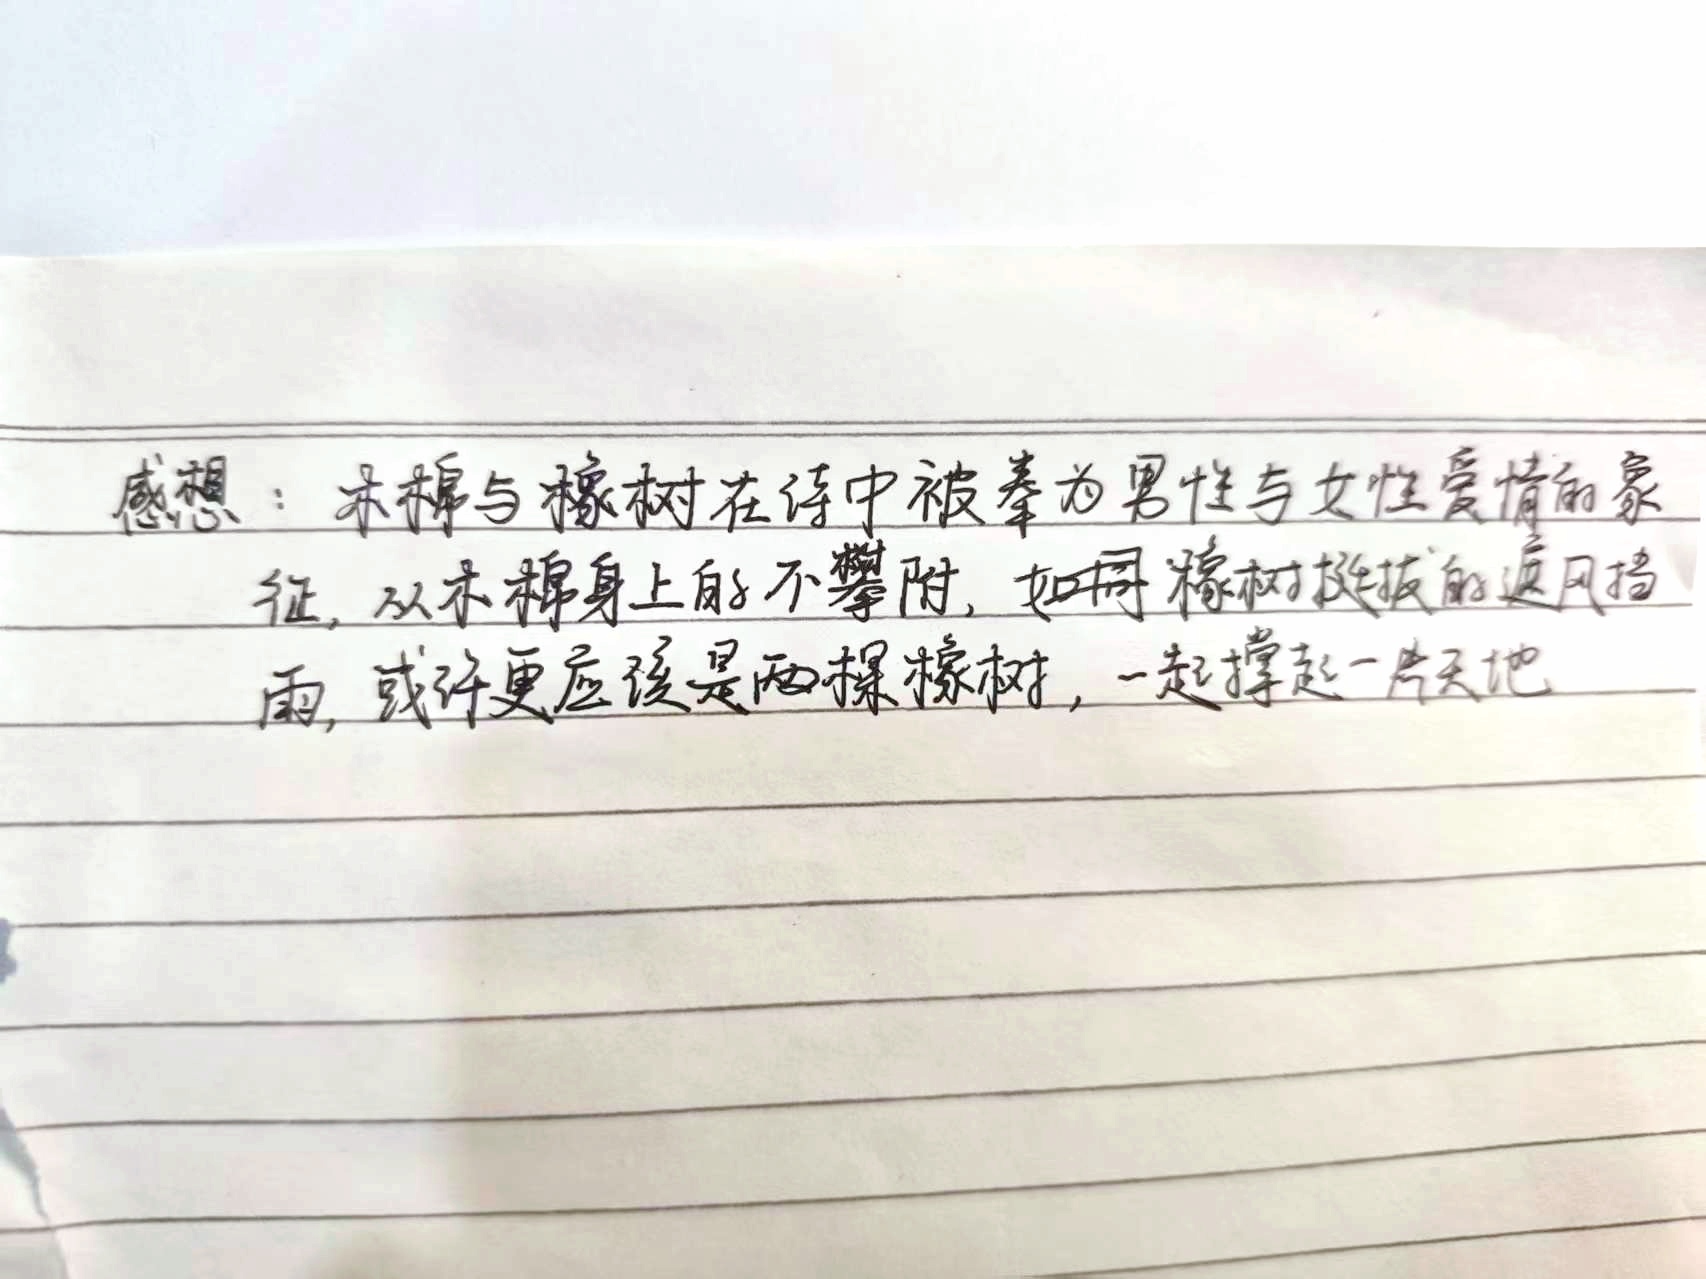 感想：木棉与橡树在诗中被奉为男性与女性爱情的象
征，从木棉身上的不攀附，如同橡树挺拔的遮风挡
雨，或许更应该是两棵橡树，一起撑起一片天地